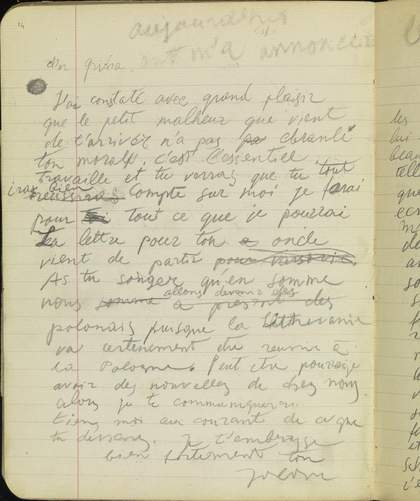 aujourd'hui
ont m'a annoncer
J'ai constaté avec grand plaisir
que le petit malheur que vient
de t'arriver n'a pas ebranlé
ton morale, c'est l'esentiel.
travaille et tu verras que tu tout
iras bien
compte sur moi je ferai
pour toi tout ce que je pourrai
La lettre pour ton oncle
vient de partir
As tu songer qu'en somme
allons devenir des
nous somme a present des
polonais puisque la Lithuanie
va certenement etre reunie a
la Pologne. Peut etre pourrai je
avoir des nouvelles de chez nous
alors je te communiquerai
tiens moi au courant de ce que
tu
Je t'embrasse
bien fortement ton